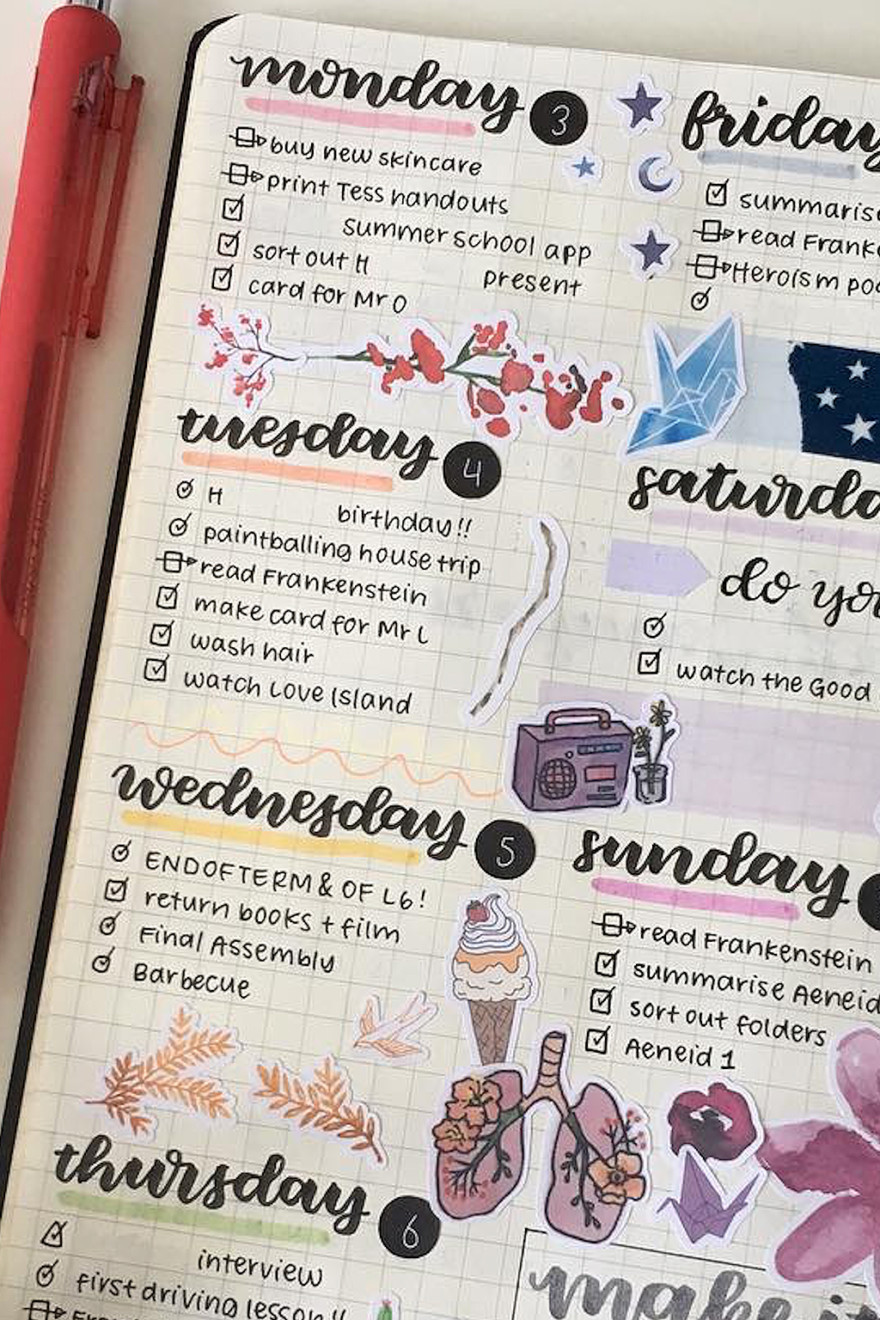 monday 3
buy new skincare
print Tess handouts
summer school app
sort out H present
card for Mr O
tuesday 4
H birthday!!
paintballing house trip
read Frankenstein
make card for Mr L
wash hair
watch Love Island
wednesday 5
END OF TERM & OF L6!
return books + film
Final Assembly
Barbecue
thursday 6
interview
first driving lesson!!
friday
summaris
read Frank
Heroism po
saturda
do yo
watch the Good
sunday
read Frankenstein
summarise Aeneid
sort out folders
Aeneid 1
make i